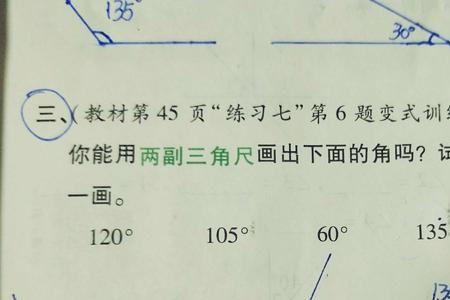 135°
30°
三、(教材第 45 页“练习七”第 6 题变式训练
你能用两副三角尺画出下面的角吗？试
一画。
120° 105° 60° 135
13